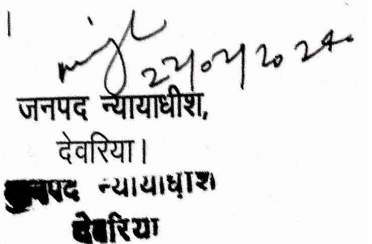 22/02/2024.
जनपद न्यायाधीश,
देवरिया।
जनपद न्यायाधीश
देवरिया